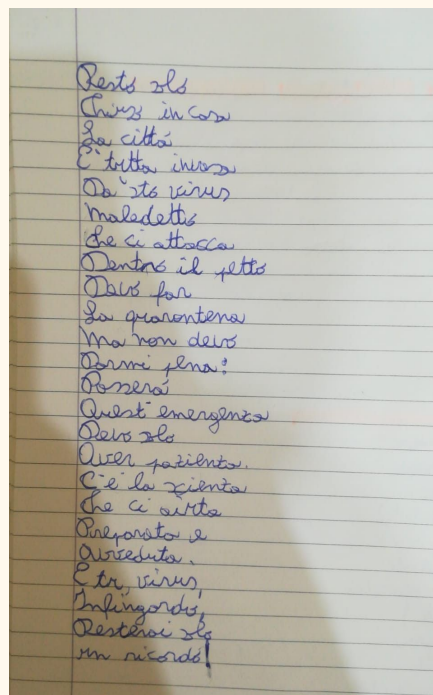 Resto solo
Chiuso in casa
La città
E' tutta invasa
Da 'sto virus
Maledetto
Che ci attacca
Dentro il petto
Devo far
La quarantena
Ma non devo
Darmi pena:
Passerà
Quest'emergenza
Devo solo
Aver pazienza.
C'è la scienza
Che ci aiuta
Preparata e
avveduta.
E tu, virus,
Infingardo,
Resterai solo
un ricordo!